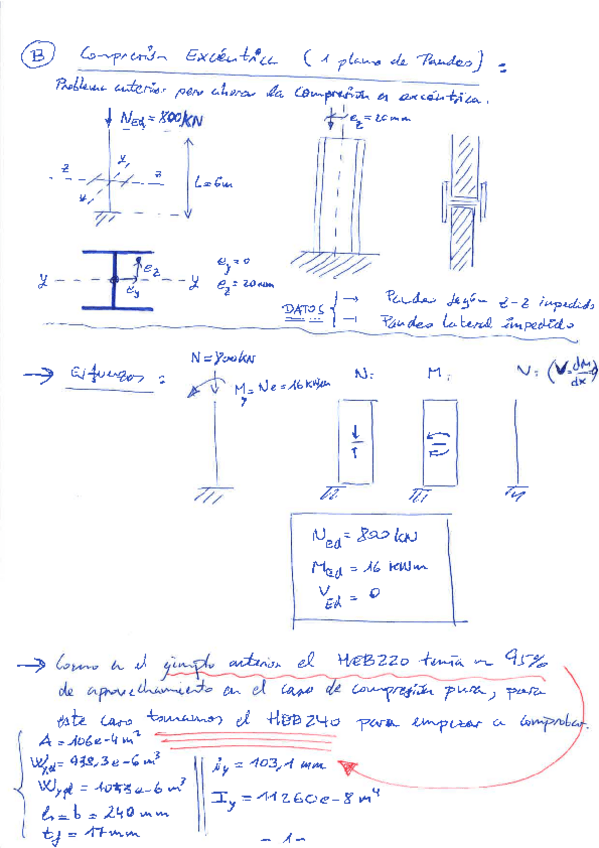 B Compresión Excéntrica ( 1 plano de Pandeo ) :
Problema anterior pero ahora la compresión es excéntrica.
N_Ed = 800 KN
e_z = 20 mm
L = 6m
y z z y
e_z
e_y
y y
e_y = 0
e_z = 20 mm
DATOS → Pandeo según z-z impedido
→ Pandeo lateral impedido
→ Esfuerzos :
N = 800 kN
M_y = Ne = 16 kNm
N: M: V: (V = dM/dx)
N_Ed = 800 kN
M_Ed = 16 kNm
V_Ed = 0
→ Como en el ejemplo anterior el HEB220 tenía un 95%
de aprovechamiento en el caso de compresión pura, para
este caso tomamos el HEB240 para empezar a comprobar.
A = 106e-4 m²
W_y,el = 938,3e-6 m³
W_y,pl = 1053e-6 m³
h = b = 240 mm
t_f = 17 mm
i_y = 103,1 mm
I_y = 11260e-8 m⁴
- 1 -